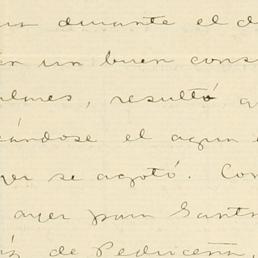 durante el d
un buen cons
resultó
cándose el agua
se agotó. Con
ayer para Santa
de Pedriceña,